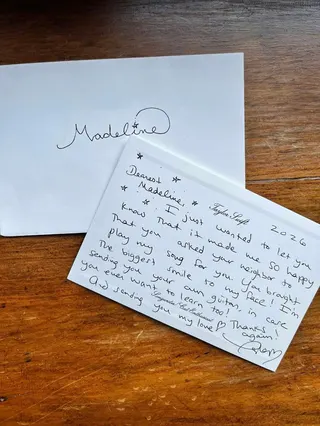 Madeline
Dearest
Madeline,
Taylor Swift
2026
I just wanted to let you
know that it made me SO happy
that you asked your neighbor to
play my song for you. You brought
the biggest smile to my face! I'm
sending you your own guitar, in case
you ever want to learn too!
And sending you my love ♡ Thanks
again!